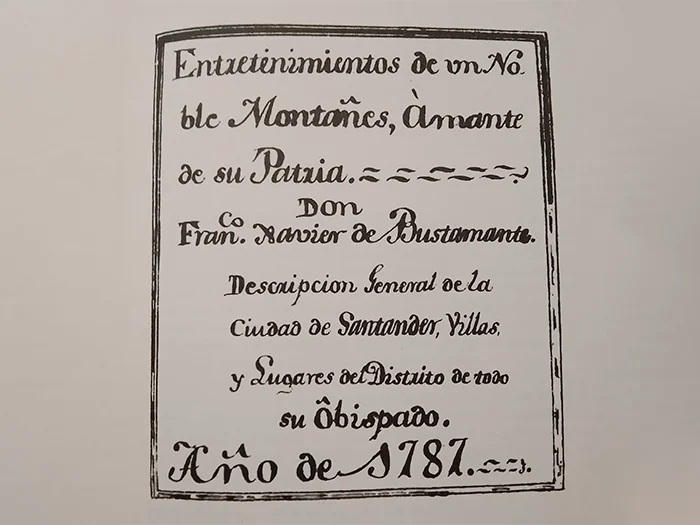 Entretenimientos de vn No-
ble Montañes, Àmante
de su Patria.
DON
Fran.co Xavier de Bustamante.
Descripcion General de la
Ciudad de Santander, Villas,
y Lugares del Distrito de todo
su Ôbispado.
Año de 1787.